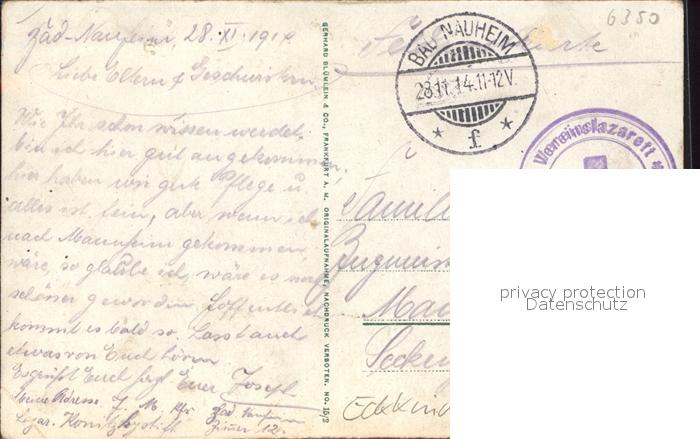 Bad-Nauheim, 28. XI. 1914
Liebe Eltern & Geschwister
Wie Ihr schon wissen werdet,
bin ich hier gut angekommen,
hier haben wir gute Pflege u.
alles ist fein, aber wenn ich
nach Mannheim gekommen
wäre, so glaube ich, wäre es noch
schöner geworden. Hoffentlich
kommt es bald so. Lasst auch
etwas von Euch hören
Es grüßt Euch Euer Joseph
Meine Adresse J. M. Bad Nauheim
Konitzkystift Zimmer 12.
GERHARD BLÜMLEIN & CO., FRANKFURT A. M. ORIGINALAUFNAHME. NACHDRUCK VERBOTEN. NO. 15/2
6350
BAD NAUHEIM
28.11.14.11-12V.
* f *
Vereinslazarett *
Familie
Ma
Secken
privacy protection
Datenschutz